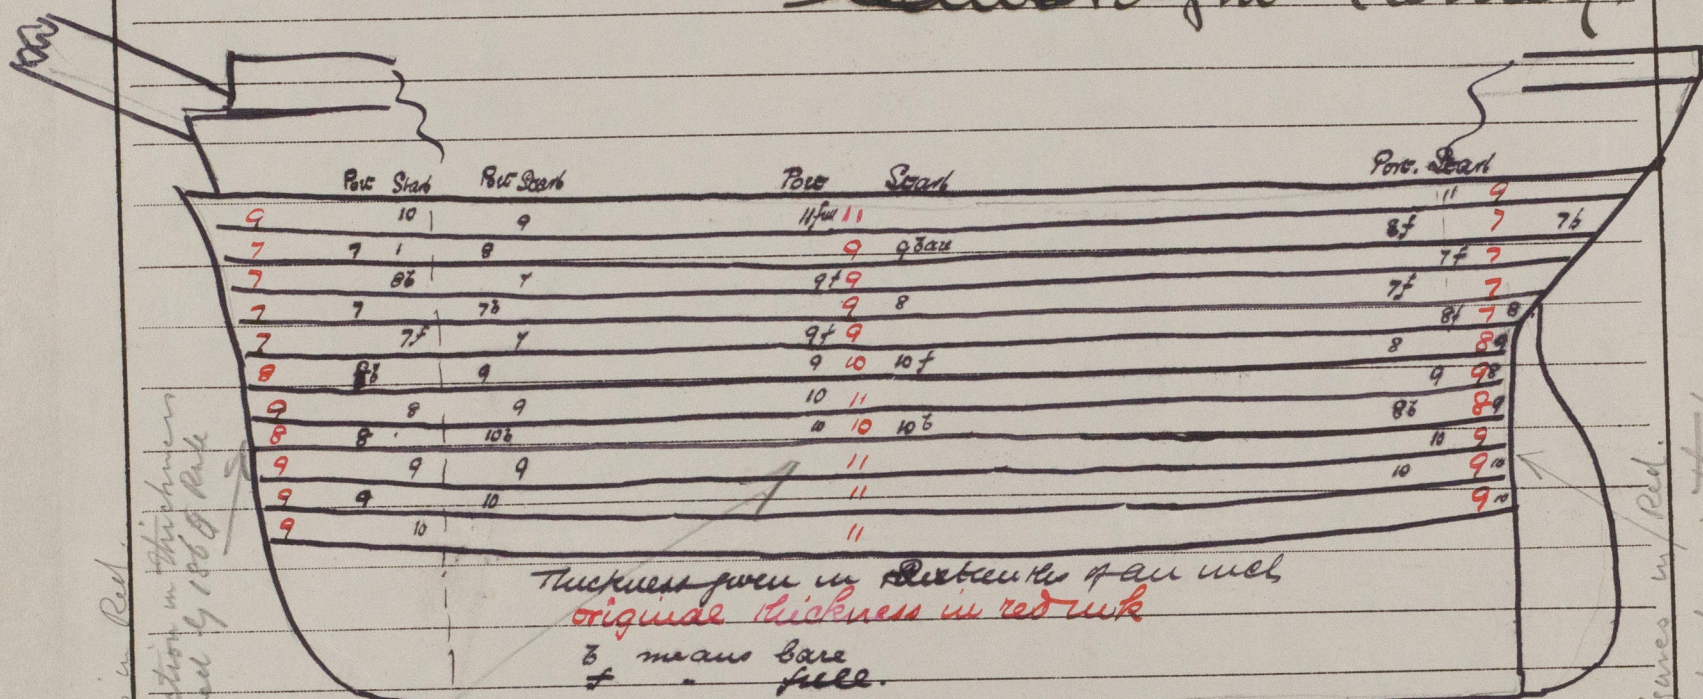 Port Starb Port Starb Port Starb Port. Starb
11 9
9 10 9 11 full 11 8f 7 7b
7 7 8 9 9 bare 7f 7
7 8b 7 9f 9 7f 7
7 7 7b 9 8 8f 7 8
7 7f 7 9f 9 8 8 9
8 8b 9 9 10 10 f 9 9 8
9 8 9 10 11 8b 8 9
8 8 10b 10 10 10 b 10 9
9 9 9 11 10 9 10
9 9 10 11 9 10
9 10 11
Thickness given in Sixteenths of an inch
original thickness in red ink
b means bare
f " full.
in Red.
in thickness
by 1886 Rule
in Red.